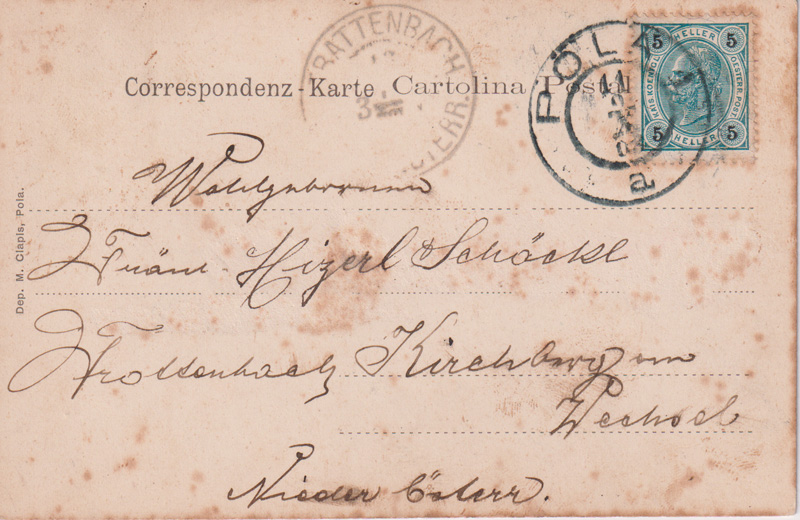 TRATTENBACH
Correspondenz-Karte Cartolina Posta
ÖSTERR.
3
PÓLA
11
a
5 HELLER 5
KAIS. KOENIGL. OESTERR. POST.
5 HELLER 5
Wohlgeborenen
Fräul. Hizerl Schöckl
Trattenbach Kirchberg am
Wechsel
Nieder Österr.
Dep. M. Clapis, Pola.